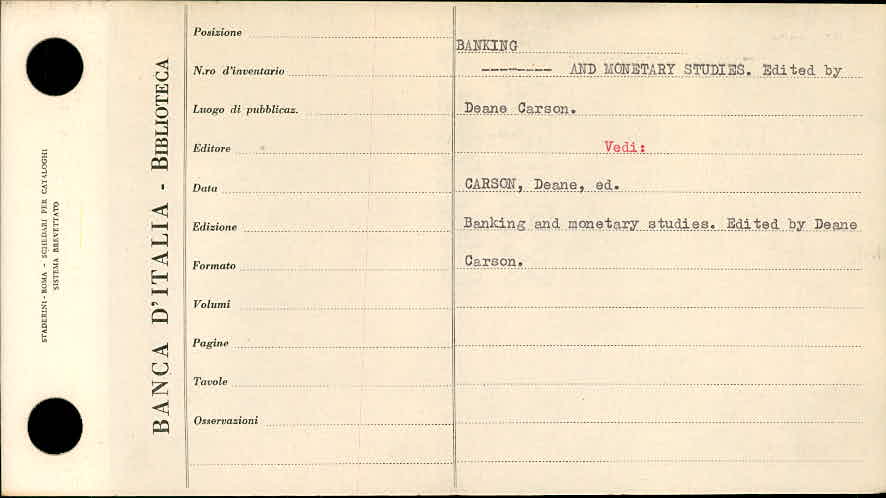 STADERINI - ROMA - SCHEDARI PER CATALOGHI
SISTEMA BREVETTATO
BANCA D'ITALIA - BIBLIOTECA
Posizione
N.ro d'inventario
Luogo di pubblicaz.
Editore
Data
Edizione
Formato
Volumi
Pagine
Tavole
Osservazioni
BANKING
-------- AND MONETARY STUDIES. Edited by
Deane Carson.
Vedi:
CARSON, Deane, ed.
Banking and monetary studies. Edited by Deane
Carson.